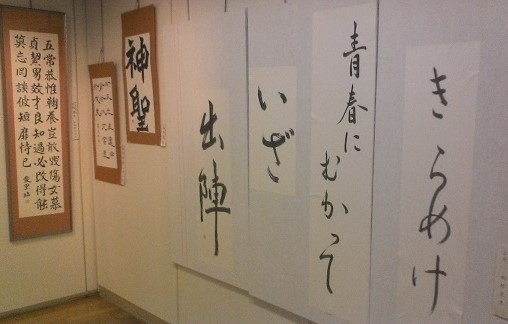 きらめけ
青春にむかって
いざ
出陣
神聖
五常恭惟鞠養豈敢毀傷女慕
貞絜男效才良知過必改得能
莫忘罔談彼短靡恃己